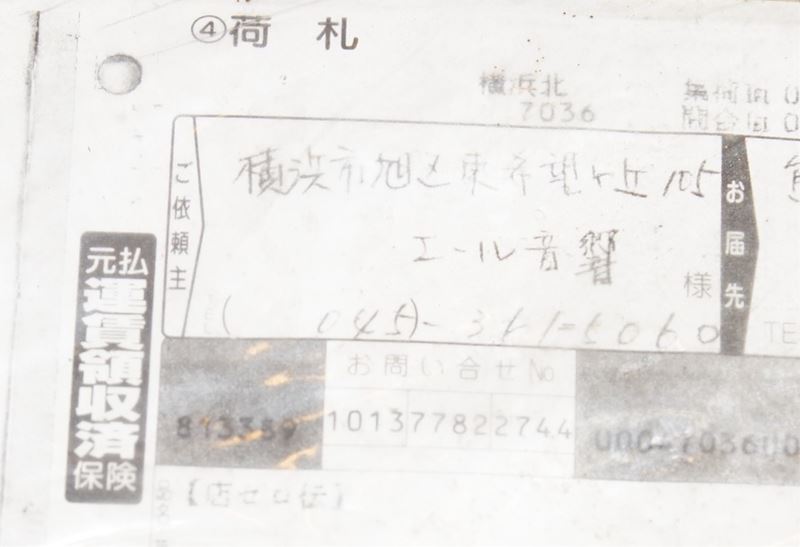 ④荷 札
横浜北
7036
集荷
問合
ご依頼主
横浜市旭区東希望ヶ丘105
エール音響
様
お届先
TEL
(045)-361-5060
TE
元払
運賃領収済
保険
お問い合せNo
813359
1013 7782 2744
000-703600
品名
【店ゼロ伝】